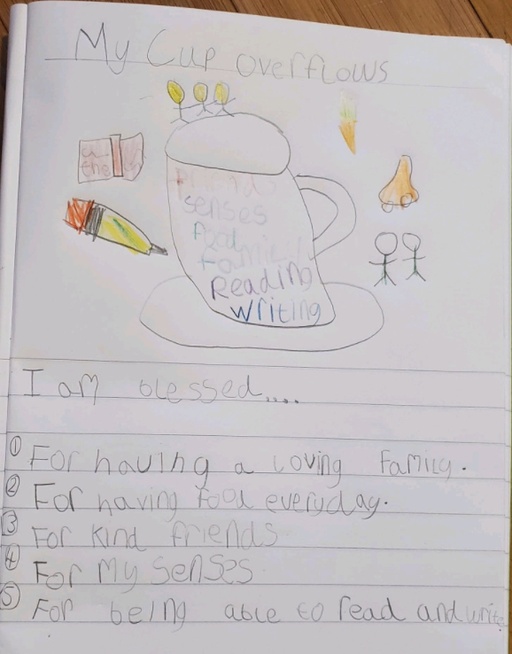 My Cup overflows
a
the
Friends
senses
food
family
Reading
writing
I am blessed....
① For having a loving family.
② For having food everyday.
③ For kind friends
④ For my senses
⑤ For being able to read and write